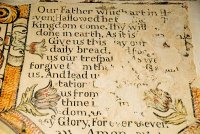 Our Father which art in
ven, Hallowed be t
Kingdom come, thy will
done in earth, As it is
Give us this day our
daily bread. th
us our trespa
forgive t m th
us. And lead u
tatior
us from
thine i
dom,
Glory, For ever & ever.
Amen